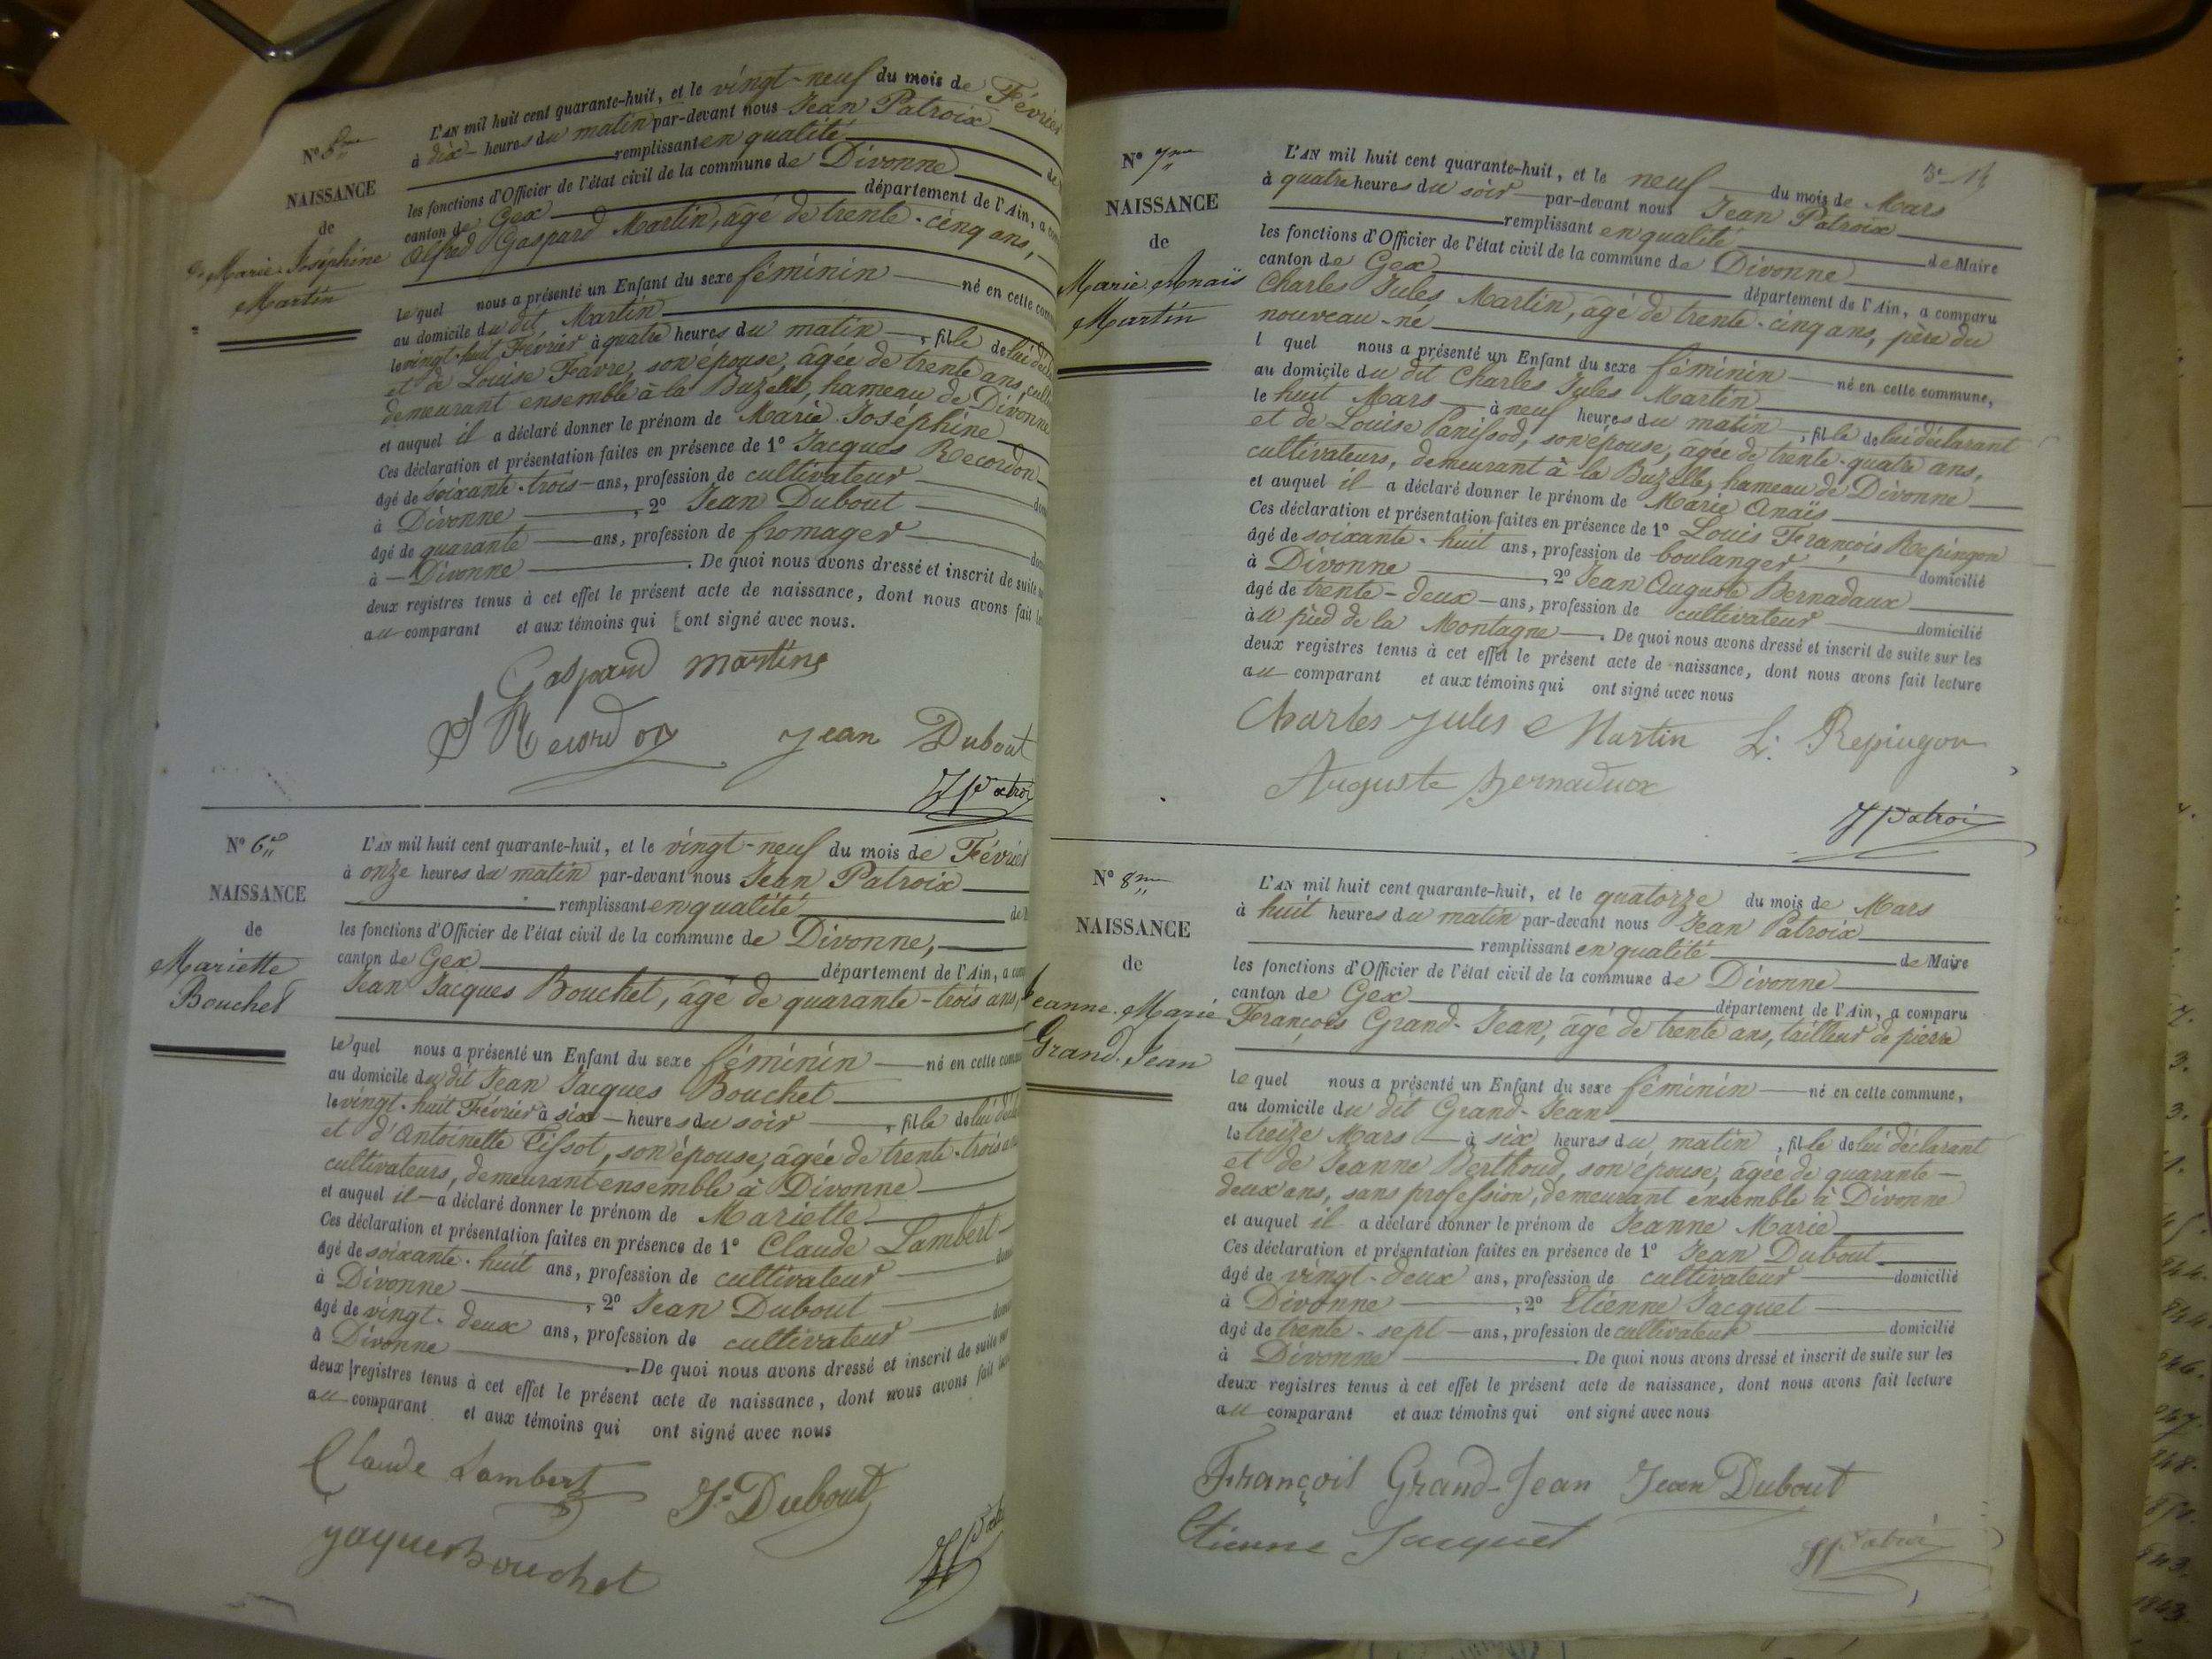 N° 5me
NAISSANCE
de
Marie Joséphine
Martin
L'AN mil huit cent quarante-huit, et le vingt-neuf du mois de Février
à dix heures du matin par-devant nous Jean Patroix
remplissant en qualité
les fonctions d'Officier de l'état civil de la commune de Divonne
canton de Gex département de l'Ain, a
Alfred Gaspard Martin, âgé de trente-cinq ans,
lequel nous a présenté un Enfant du sexe féminin né en cette
au domicile du dit Martin
le vingt-huit Février à quatre heures du matin, fille de lui
et de Louise Favre, son épouse, âgée de trente ans,
demeurant ensemble à la Buzelle, hameau de Divonne
et auquel il a déclaré donner le prénom de Marie Joséphine
Ces déclaration et présentation faites en présence de 1° Jacques Recordon
âgé de soixante-trois ans, profession de cultivateur
à Divonne, 2° Jean Dubout
âgé de quarante ans, profession de fromager
à Divonne. De quoi nous avons dressé et inscrit de suite
deux registres tenus à cet effet le présent acte de naissance, dont nous avons fait
au comparant et aux témoins qui ont signé avec nous.
Gaspard Martin
J Recordon Jean Dubout
J Patroix
N° 6me
NAISSANCE
de
Mariette
Bouchet
L'AN mil huit cent quarante-huit, et le vingt-neuf du mois de Février
à onze heures du matin par-devant nous Jean Patroix
remplissant en qualité
les fonctions d'Officier de l'état civil de la commune de Divonne,
canton de Gex département de l'Ain, a
Jean Jacques Bouchet, âgé de quarante-trois ans,
lequel nous a présenté un Enfant du sexe féminin né en cette
au domicile du dit Jean Jacques Bouchet
le vingt-huit Février à six heures du soir, fille de lui
et d'Antoinette Tissot, son épouse, âgée de trente-trois
cultivateurs, demeurant ensemble à Divonne
et auquel il a déclaré donner le prénom de Mariette
Ces déclaration et présentation faites en présence de 1° Claude Lambert
âgé de soixante-huit ans, profession de cultivateur
à Divonne, 2° Jean Dubout
âgé de vingt-deux ans, profession de cultivateur
à Divonne. De quoi nous avons dressé et inscrit de suite sur
deux registres tenus à cet effet le présent acte de naissance, dont nous avons fait
au comparant et aux témoins qui ont signé avec nous
Claude Lambert J. Dubout
Jaques Bouchet
N° 7me
NAISSANCE
de
Marie Anaïs
Martin
L'AN mil huit cent quarante-huit, et le neuf du mois de Mars
à quatre heures du soir par-devant nous Jean Patroix
remplissant en qualité de Maire
les fonctions d'Officier de l'état civil de la commune de Divonne
canton de Gex département de l'Ain, a comparu
Charles Jules Martin, âgé de trente-cinq ans, père du
nouveau-né
l quel nous a présenté un Enfant du sexe féminin né en cette commune,
au domicile du dit Charles Jules Martin
le huit Mars à neuf heures du matin, fille de lui déclarant
et de Louise Panissod, son épouse, âgée de trente-quatre ans,
cultivateurs, demeurant à la Buzelle, hameau de Divonne
et auquel il a déclaré donner le prénom de Marie Anais
Ces déclaration et présentation faites en présence de 1° Louis François Repingon
âgé de soixante-huit ans, profession de boulanger domicilié
à Divonne, 2° Jean Auguste Bernadaux
âgé de trente-deux ans, profession de cultivateur domicilié
au pied de la Montagne. De quoi nous avons dressé et inscrit de suite sur les
deux registres tenus à cet effet le présent acte de naissance, dont nous avons fait lecture
au comparant et aux témoins qui ont signé avec nous
Charles Jules Martin L. Repingon
Auguste Bernadux
J Patroix
N° 8me
NAISSANCE
de
Jeanne Marie
Grand-Jean
L'AN mil huit cent quarante-huit, et le quatorze du mois de Mars
à huit heures du matin par-devant nous Jean Patroix
remplissant en qualité de Maire
les fonctions d'Officier de l'état civil de la commune de Divonne
canton de Gex département de l'Ain, a comparu
François Grand-Jean, âgé de trente ans, tailleur de pierre
lequel nous a présenté un Enfant du sexe féminin né en cette commune,
au domicile du dit Grand-Jean
le treize Mars à six heures du matin, fille de lui déclarant
et de Jeanne Berthoud, son épouse, âgée de quarante-
deux ans, sans profession, demeurant ensemble à Divonne
et auquel il a déclaré donner le prénom de Jeanne Marie
Ces déclaration et présentation faites en présence de 1° Jean Dubout
âgé de vingt-deux ans, profession de cultivateur domicilié
à Divonne, 2° Etienne Jacquet
âgé de trente-sept ans, profession de cultivateur domicilié
à Divonne. De quoi nous avons dressé et inscrit de suite sur les
deux registres tenus à cet effet le présent acte de naissance, dont nous avons fait lecture
au comparant et aux témoins qui ont signé avec nous
François Grand-Jean Jean Dubout
Etienne Jacquet
J Patroix